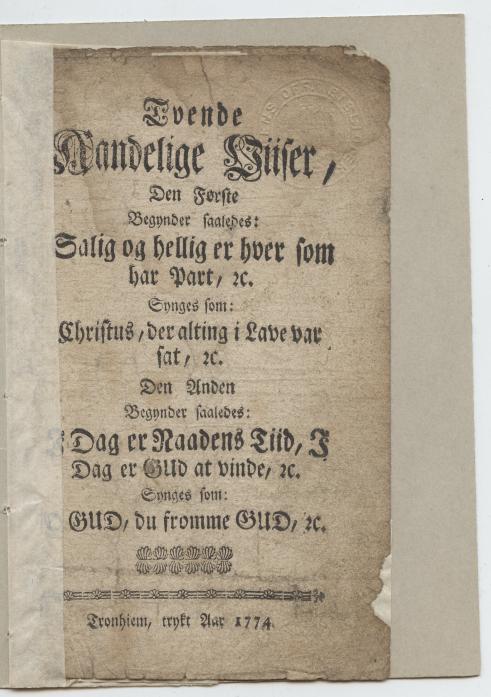 Tvende
Aandelige Viiser,
Den Første
Begynder saaledes:
Salig og hellig er hver som
har Part, ꝛc.
Synges som:
Christus, der alting i Lave var
sat, ꝛc.
Den Anden
Begynder saaledes:
I Dag er Naadens Tiid, I
Dag er GUd at vinde, ꝛc.
Synges som:
O GUD, du fromme GUD, ꝛc.
Tronhiem, trykt Aar 1774